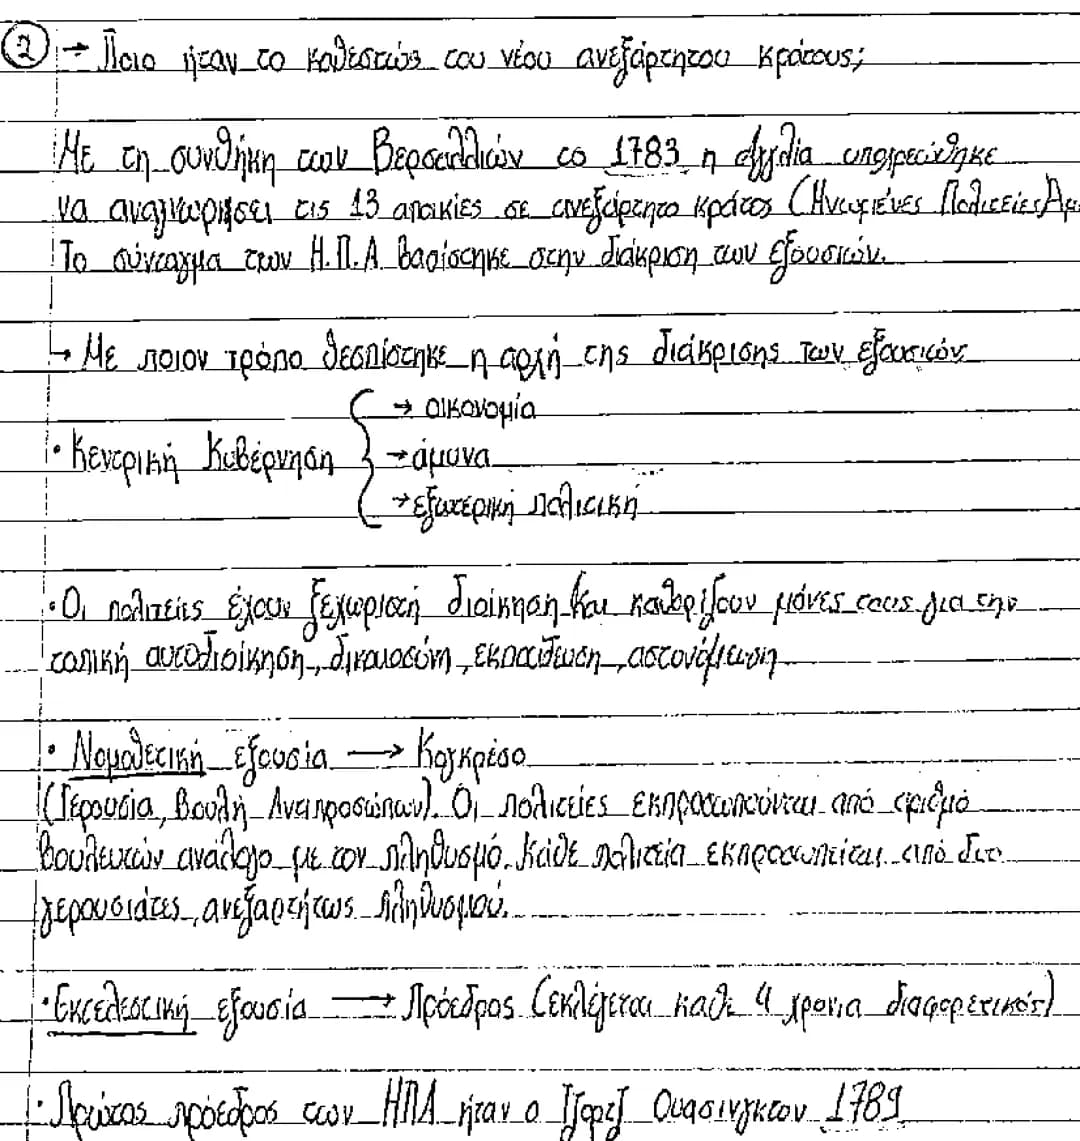 ② → Ποιο ήταν το καθεστώς του νέου ανεξάρτητου κράτους;
Με τη συνθήκη των Βερσαλλιών το 1783 η Αγγλία υποχρεώθηκε
να αναγνωρίσει τις 13 αποικίες σε ανεξάρτητο κράτος (Ηνωμένες Πολιτείες Αμ.
Το σύνταγμα των Η.Π.Α βασίστηκε στην διάκριση των εξουσιών.
↳ Με ποιον τρόπο θεσπίστηκε η αρχή της διάκρισης των εξουσιών
→ οικονομία
• Κεντρική Κυβέρνηση { → άμυνα
→ εξωτερική πολιτική
• Οι πολιτείες έχουν ξεχωριστή διοίκηση και καθορίζουν μόνες τους για την
τοπική αυτοδιοίκηση, δικαιοσύνη, εκπαίδευση, αστονόμευση
• Νομοθετική εξουσία → Κογκρέσο
(Γερουσία, Βουλή Αντιπροσώπων). Οι πολιτείες εκπροσωπούνται από αριθμό
βουλευτών ανάλογο με τον πληθυσμό. Κάθε πολιτεία εκπροσωπείται από δυο
γερουσιάτες, ανεξαρτήτως πληθυσμού.
• Εκτελεστική εξουσία → Πρόεδρος (εκλέγεται κάθε 4 χρόνια διαφορετικός)
• Πρώτος πρόεδρος των ΗΠΑ ήταν ο Τζορτζ Ουάσινγκτον 1789